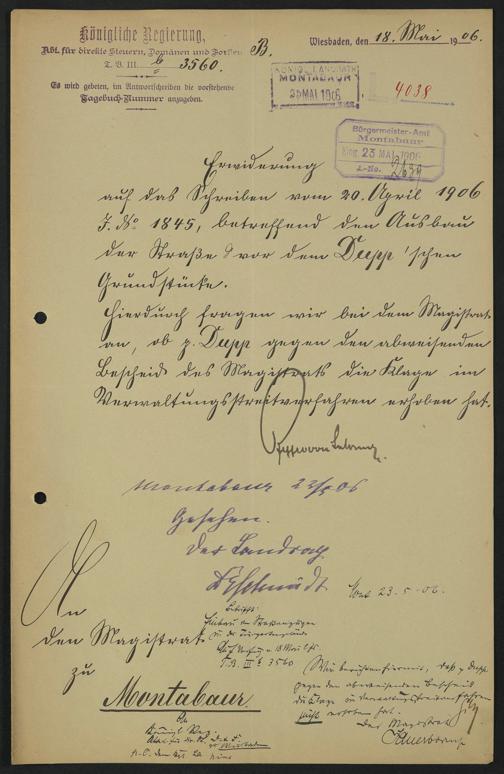 Königliche Regierung,
Abt. für direkte Steuern, Domänen und Forsten B.
T. B. III. b 3560.
Es wird gebeten, im Antwortschreiben die vorstehende
Tagebuch-Nummer anzugeben.
Wiesbaden, den 18. Mai 1906.
KÖNIGL. LANDRATH
MONTABAUR
MAI 1906
4038
Bürgermeister-Amt
Montabaur
Eing. 23 MAI 1906
J.-No.
Erwiderung
auf das Schreiben vom 20. April 1906
J. No 1845, betreffend den Ausbau
der Straße vor dem Depp'schen
Grundstücke.
Hierdurch fragen wir bei dem Magistrat
an, ob p. Depp gegen den abweisenden
Bescheid des Magistrats die Klage im
Verwaltungsstreitverfahren erhoben hat.
Montabaur 22/5 06
Gesehen.
Der Landrat
An
den Magistrat
zu
Montabaur.
23.5.06.
Betrifft:
18 Mai
T.B. III b 3560
Wir berichten hiermit, daß p. Depp
gegen den abweisenden Bescheid
die Klage im Verwaltungsstreitverfahren
nicht erhoben hat.
Der Magistrat
An
Königl. Reg.
Wiesbaden